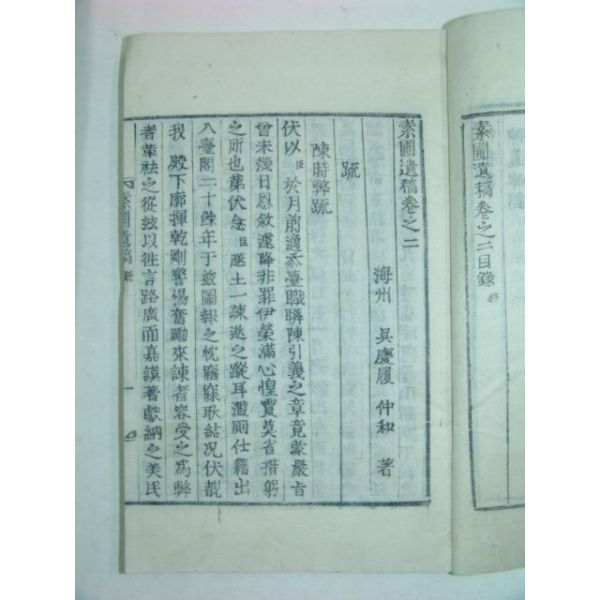 素圃遺稿卷之二目錄 終
素圃遺稿卷之二
海州 吳慶履 仲和 著
疏
陳時弊疏
伏以 臣 於月前適忝臺職聯陳引義之章竟蒙嚴旨
曾未幾日恩敘遽降非罪伊榮滿心惶實莫省措躬
之所也第伏念 臣 遐土一疎逖之蹤耳濫厠仕籍出
入臺閣二十餘年于玆圖報之忱寤寐耿結况伏覩
我 殿下廓揮乾剛警惕奮勵來諫者容受之爲弊
者革祛之從玆以徃言路廣而嘉謨著獻納之美民
素圃遺稿 疏 一